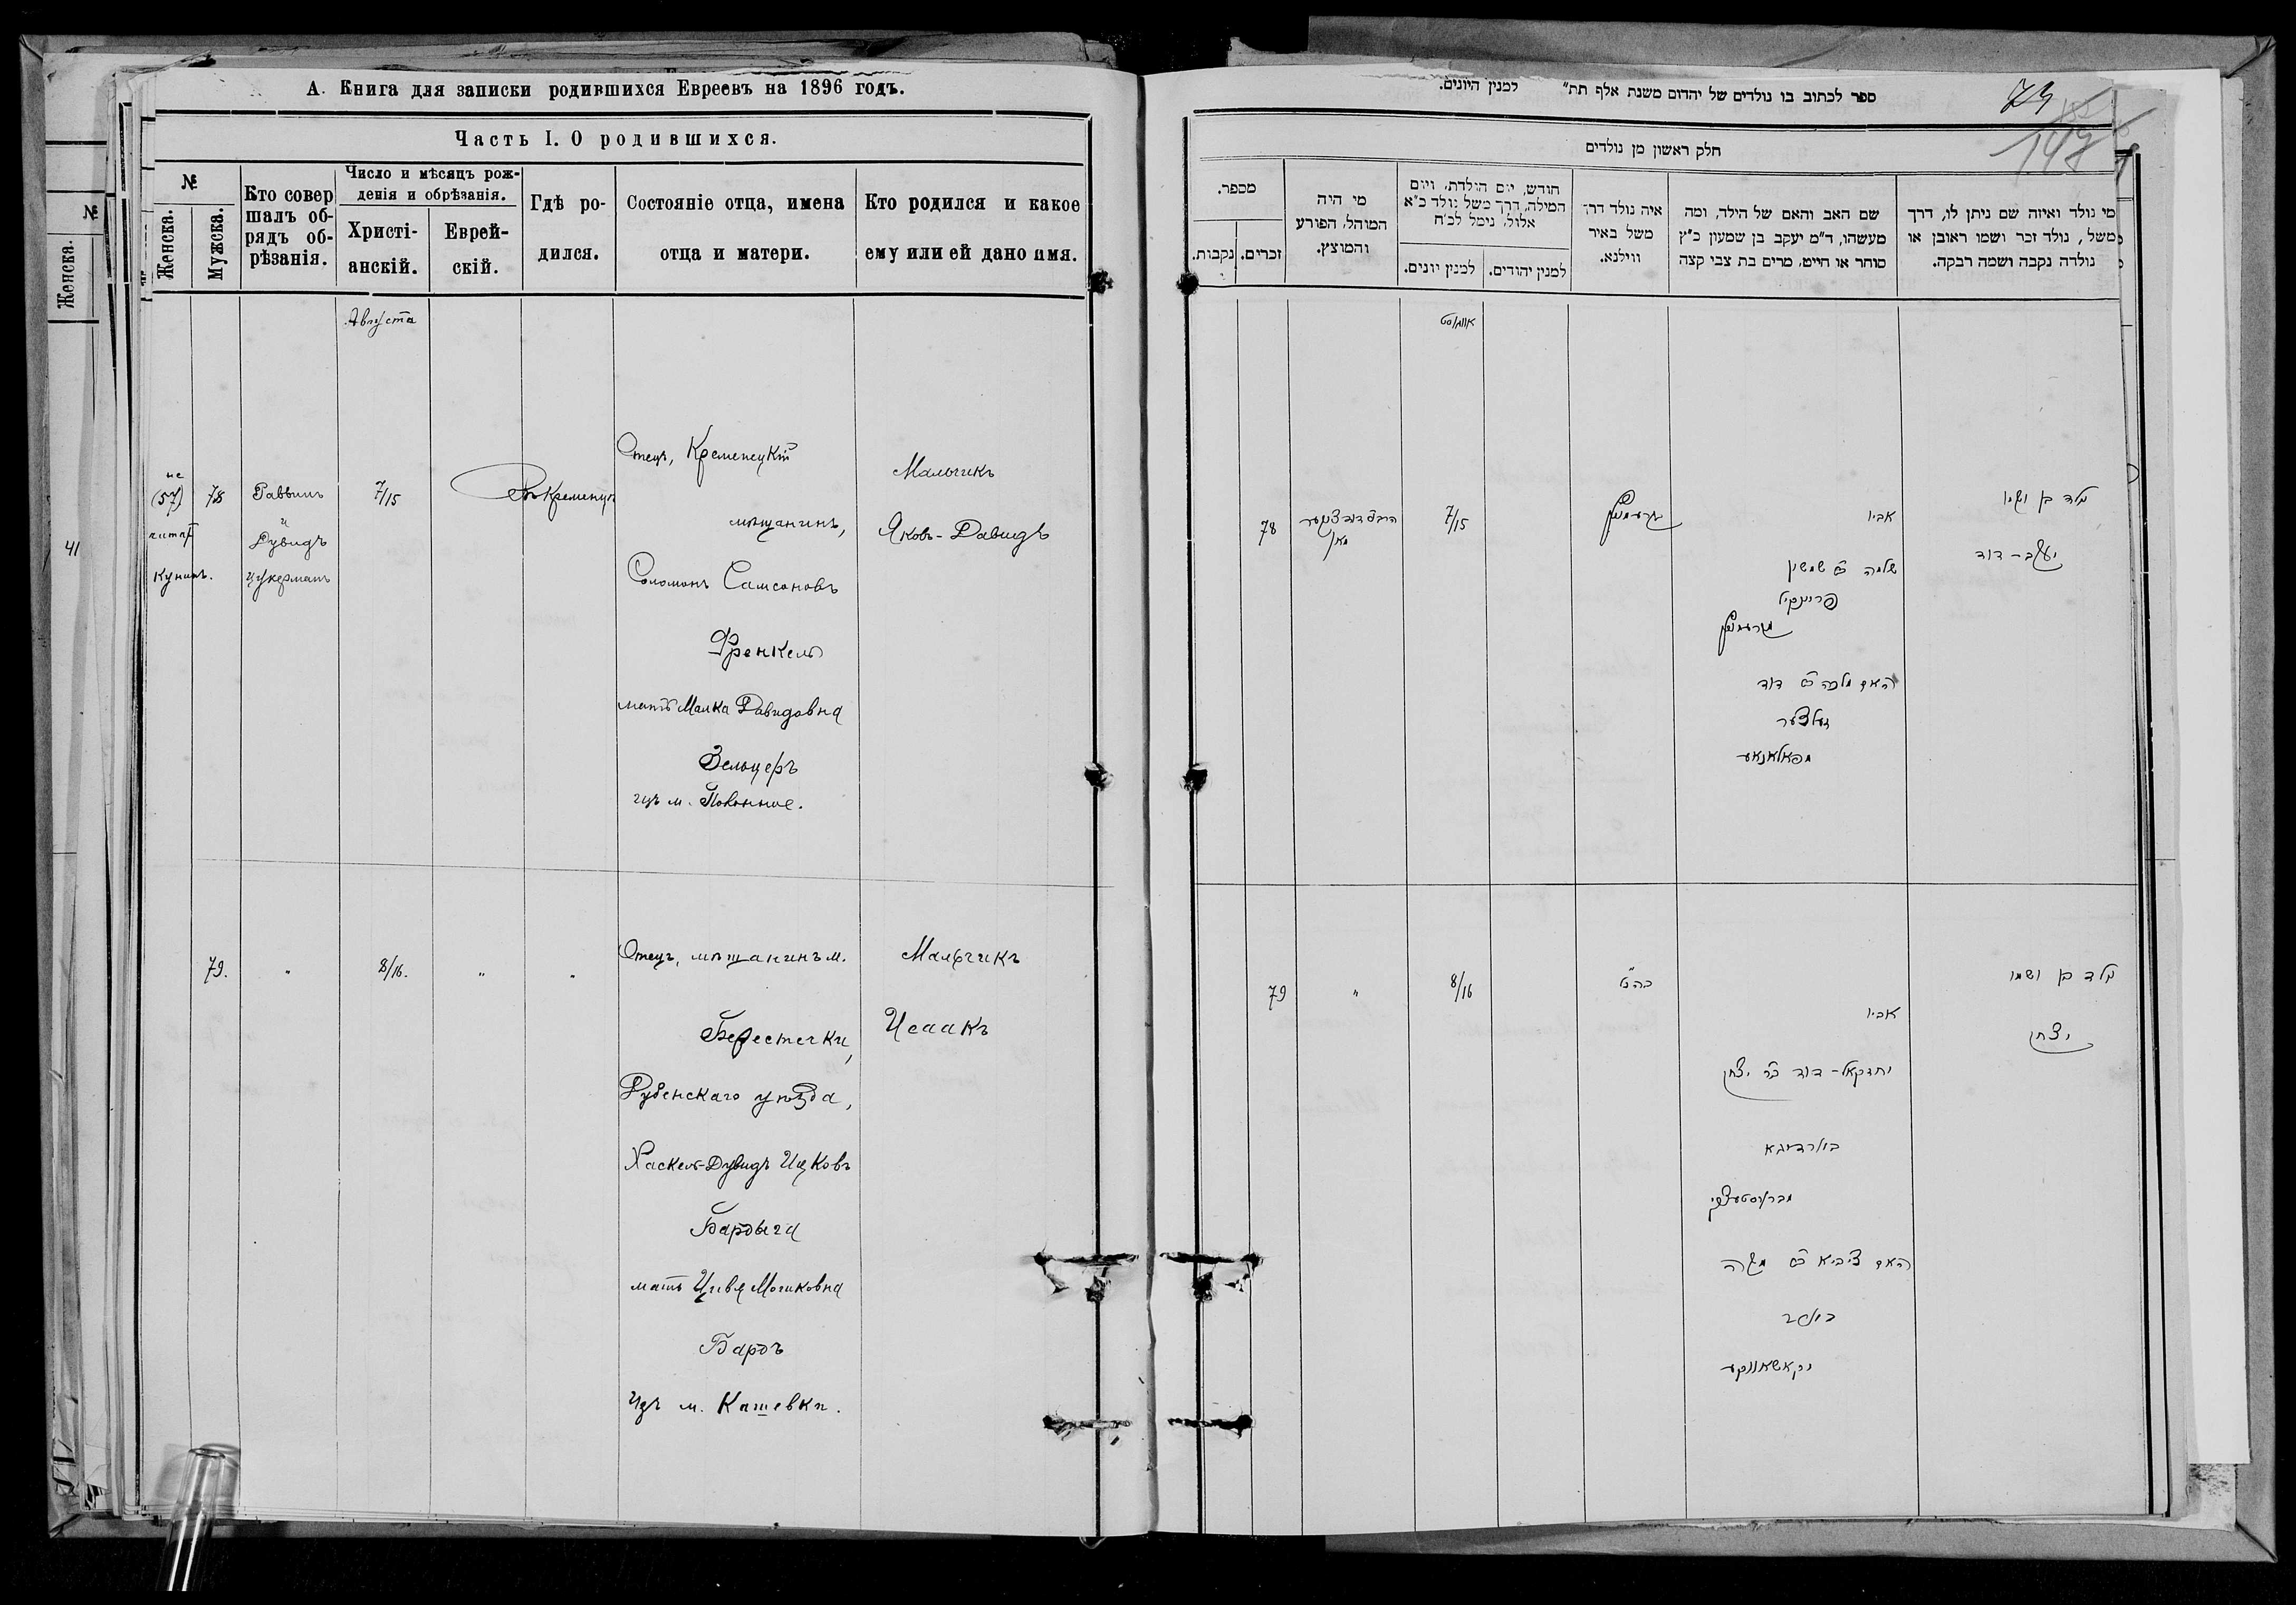 А. Книга для записки родившихся Евреевъ на 1896 годъ.
Часть I. О родившихся.
№
Женска.
Мужска.
Кто совер
шалъ об-
рядъ об-
рѣзанія.
Число и мѣсяцъ рож-
денія и обрѣзанія.
Христі-
анскій.
Еврей-
скій.
Гдѣ ро-
дился.
Состояніе отца, имена
отца и матери.
Кто родился и какое
ему или ей дано имя.
№
Женска.
41
Августа
не
(57)
78
Раввинъ
и
Дувидъ
Цукерманъ
7/15
Отецъ, Кременецкій
мѣщанинъ,
Соломонъ Самсоновъ
Френкель
мать Малка Давидовна
Зельцеръ
изъ м. Полонное.
Мальчикъ
Яковъ-Давидъ
79.
"
8/16.
"
"
Отецъ, мѣщанинъ м.
Берестечки,
Дубенскаго уѣзда,
Хаскель-Дувидъ Ицковъ
Бардыга
мать Цивя Мошковна
Бардъ
изъ м. Кашевки.
Мальчикъ
Исаакъ
ספר לכתוב בו נולדים של יהדום משנת אלף תת" למנין היונים.
74
147
חלק ראשון מן נולדים
מספר.
נקבות.
זכרים.
מי היה
המוהל, הפורע
והמוצץ.
חודש, יום הולדת, ויום
המילה, דרך משל נולד כ"א
אלול, נימל לכ"ח
למנין יונים.
למנין יהודים.
איה נולד דרך
משל באיר
ווילנא.
שם האב והאם של הילד, ומה
מעשהו, ד"מ יעקב בן שמעון כ"ץ
סוחר או חייט, מרים בת צבי קצה
מי נולד ואיזה שם ניתן לו, דרך
משל, נולד זכר ושמו ראובן או
נולדה נקבה ושמה רבקה.
אווגוסט
78
7/15
אביו
שלמה ב"ר שמשון
פרענקיל
האם מלכה ב"ר דוד
זעלצער
מפאלאנאע
נולד בן ושמו
יעקב-דוד
79
"
8/16
אביו
יחזקאל-דוד ב"ר יצחק
האם ציביא ב"ר משה
מקאשאווקע
נולד בן ושמו
יצחק